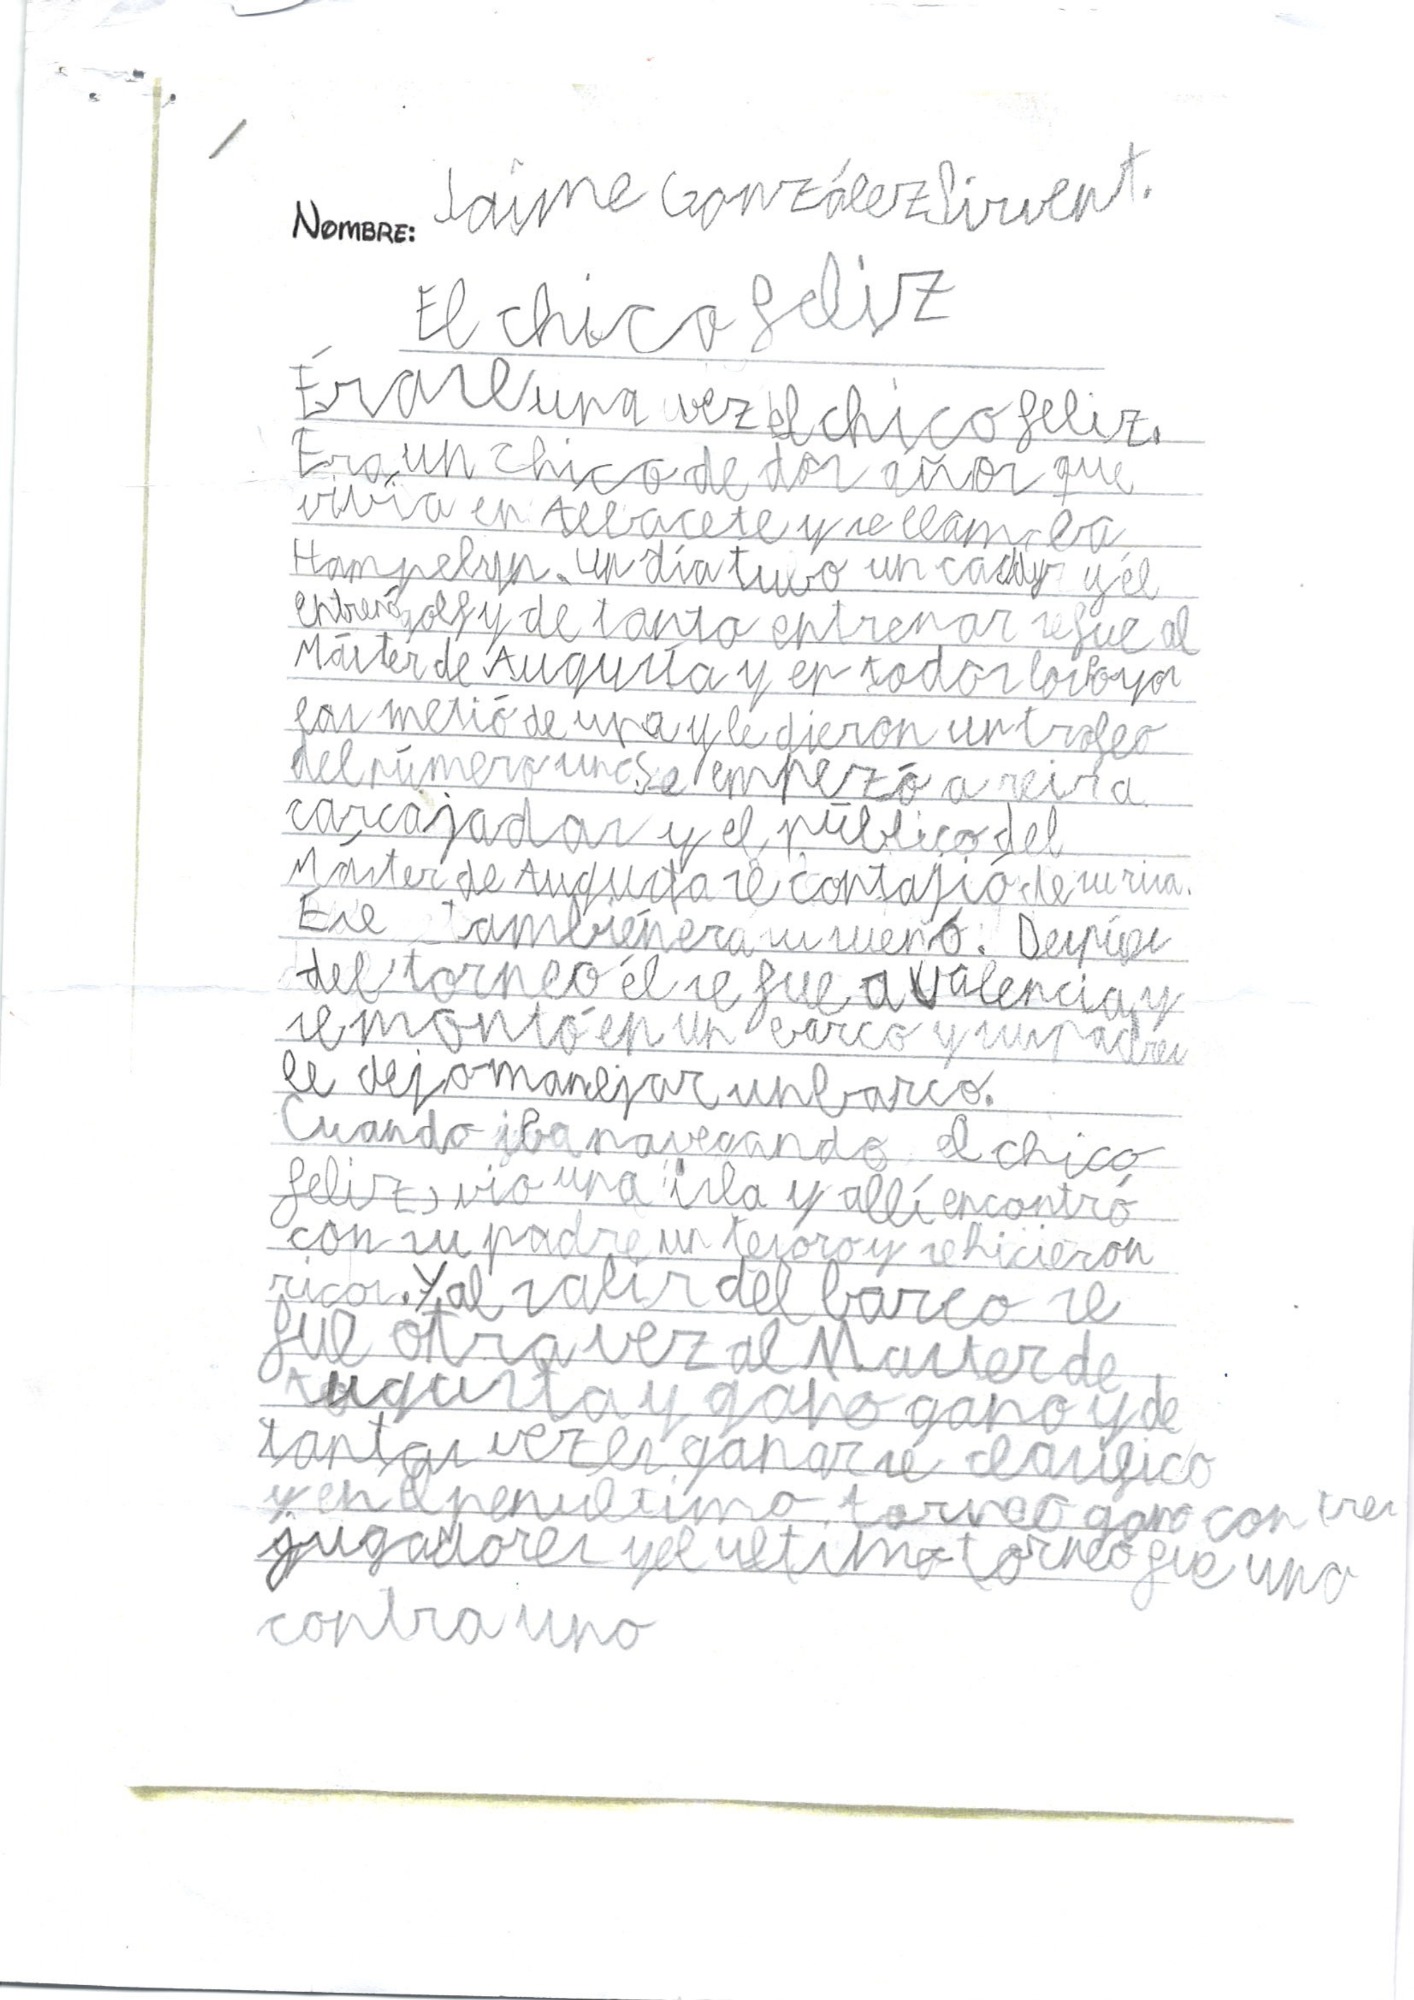 NOMBRE: Jaime González Sirvent.
El chico feliz
Érase una vez el chico feliz.
Era un chico de dos años que
vivía en Albacete y se llamaba
Hampelyn. Un día tuvo un caddy y él
entrenó golf y de tanto entrenar se fue al
Máster de Augusta y en todos los hoyos
las metió de una y le dieron un trofeo
del número uno. Se empezó a reir a
carcajadas y el público del
Máster de Augusta se contajió de su risa.
Ese también era su sueño. Después
del torneo él se fue a Valencia y
se montó en un barco y sus padres
le dejo manejar un barco.
Cuando iba navegando el chico
feliz, vio una isla y allí encontró
con su padre un tesoro y se hicieron
ricos. Y al salir del barco se
fue otra vez al Master de
Augusta y gano gano y de
tantas veces ganar se clasifico
y en el penultimo torneo gano con tres
jugadores y el ultimo torneo fue uno
contra uno